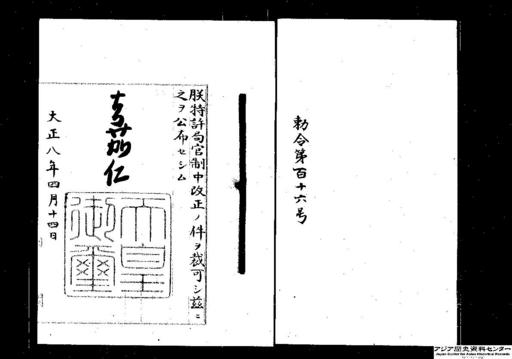 勅令第百十六号
朕特許局官制中改正ノ件ヲ裁可シ茲ニ
之ヲ公布セシム
嘉仁
天皇
御璽
大正八年四月十四日
アジア歴史資料センター
Japan Center for Asian Historical Records